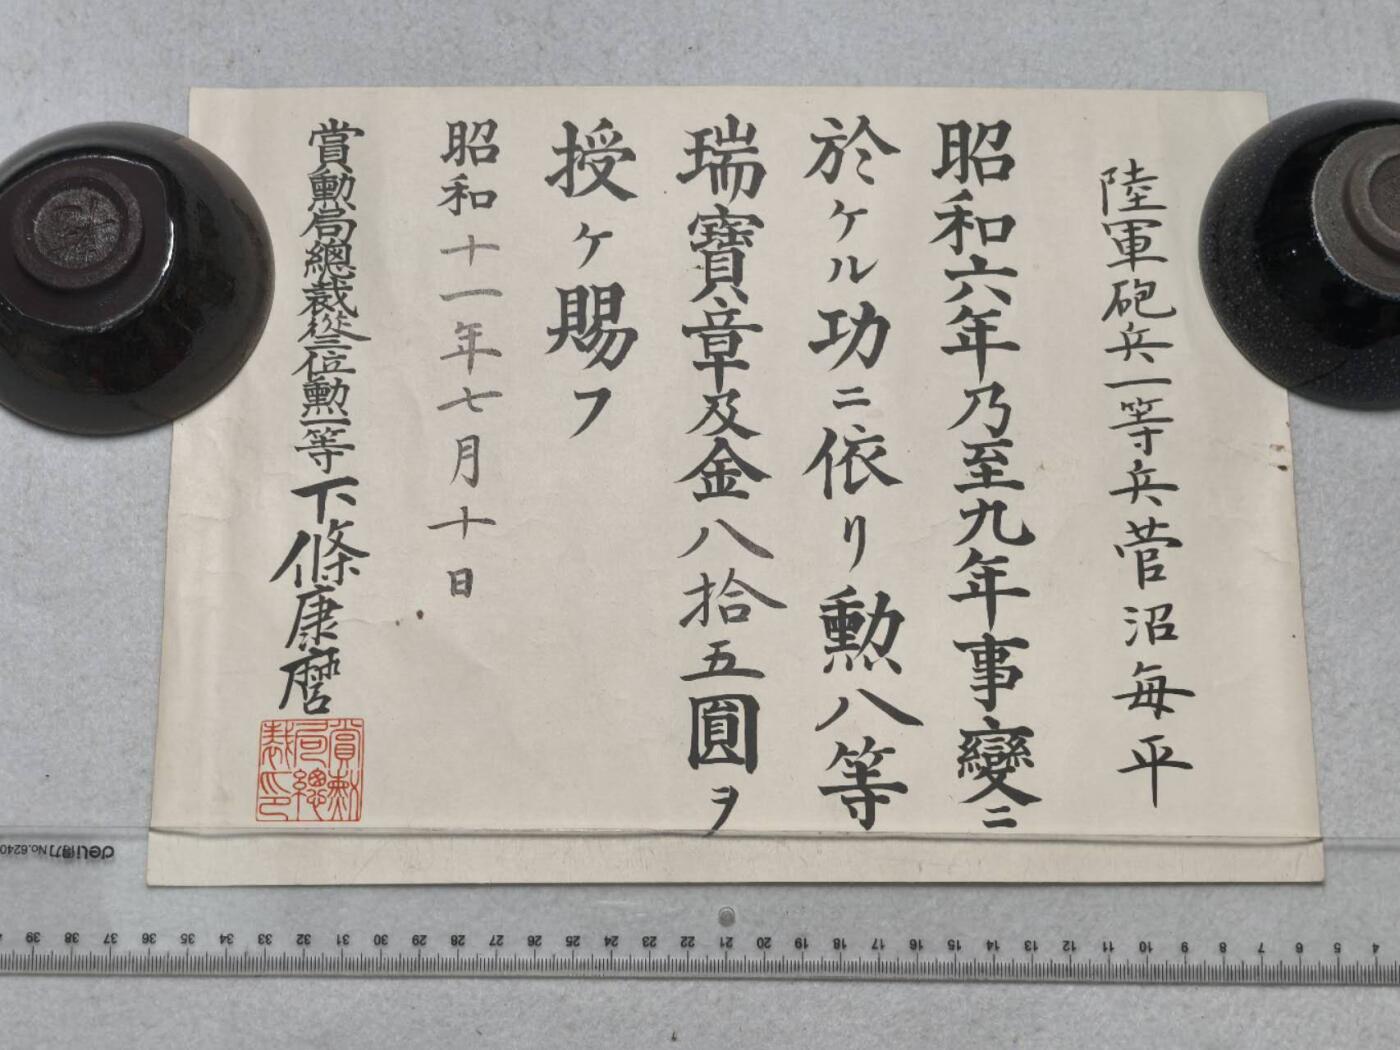 陸軍砲兵一等兵菅沼毎平
昭和六年乃至九年事變ニ
於ケル功ニ依リ勲八等
瑞寶章及金八拾五圓ヲ
授ケ賜フ
昭和十一年七月十日
賞勲局總裁從三位勲一等下條康麿
賞勲局總裁印
deli得力 No.6240
39 38 37 36 35 34 33 32 31 30 29 28 27 26 25 24 23 22 21 20 19 18 17 16 15 14 13 12 11 10 9 8 7 6 5 4